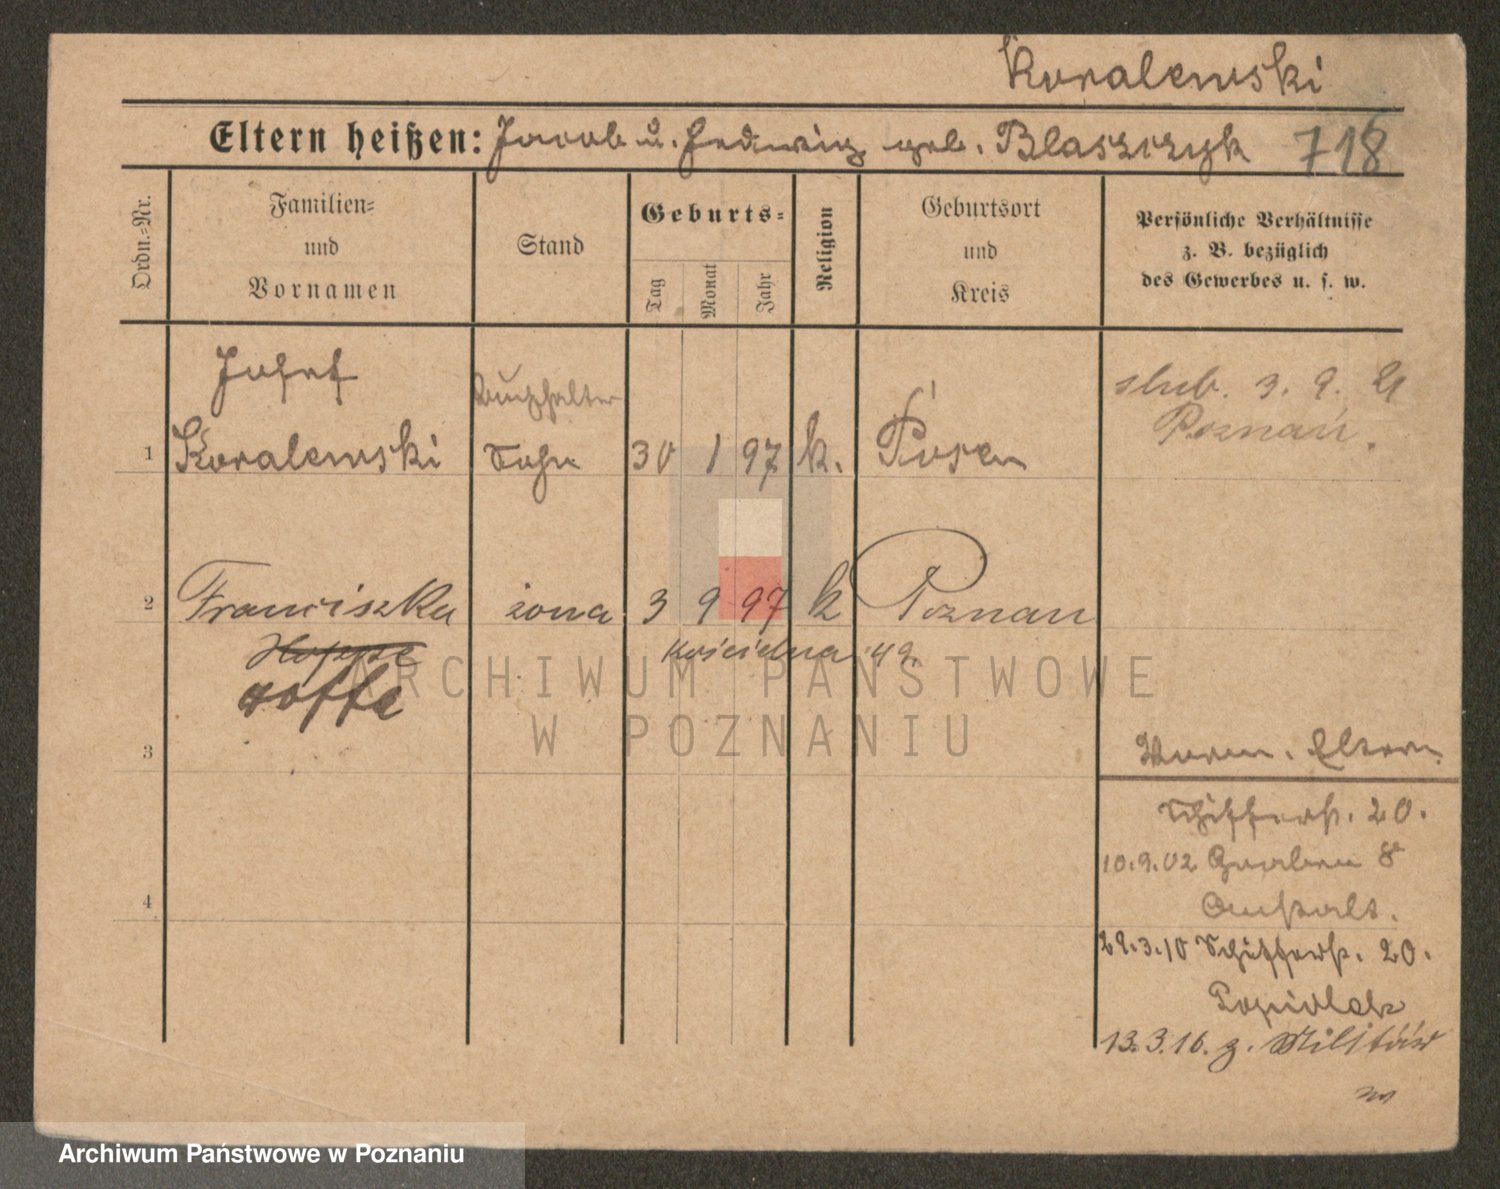 Koralewski
Eltern heißen: Jacob u. Hedwig geb. Blaszczyk 718
Ordn.-Nr.
Familien-
und
Vornamen
Stand
Geburts-
Tag
Monat
Jahr
Religion
Geburtsort
und
Kreis
Persönliche Verhältnisse
z. B. bezüglich
des Gewerbes u. s. w.
Josef
Buchhalter
ślub. 3. 9. 21
Poznań.
1 Koralewski Sohn 30 1 97 k. Posen
2 Franciszka żona 3 9 97 k Poznań
Hoppe Kościelna 49.
Hoffa
ARCHIWUM PAŃSTWOWE
W POZNANIU
3
Eltern.
Schifferst. 20.
10.9.02 Graben 8
Anstalt.
29.3.10 Schifferst. 20.
4
13.3.16. z. Militär
Archiwum Państwowe w Poznaniu